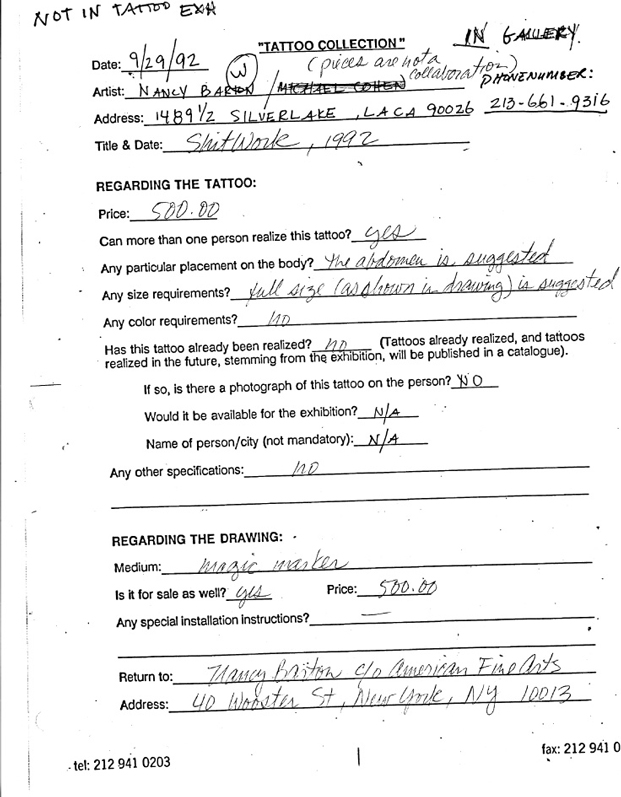 NOT IN TATTOO EXH
IN GALLERY.
"TATTOO COLLECTION"
Date: 9/29/92
W
(pieces are not a collaboration)
Artist: NANCY BARTON / MICHAEL COHEN
PHONE NUMBER:
Address: 1489 1/2 SILVERLAKE, LA CA 90026 213-661-9316
Title & Date: ShitWork, 1992
REGARDING THE TATTOO:
Price: 500.00
Can more than one person realize this tattoo? yes
Any particular placement on the body? the abdomen is suggested
Any size requirements? full size (as shown in drawing) is suggested
Any color requirements? no
Has this tattoo already been realized? no (Tattoos already realized, and tattoos
realized in the future, stemming from the exhibition, will be published in a catalogue).
If so, is there a photograph of this tattoo on the person? NO
Would it be available for the exhibition? N/A
Name of person/city (not mandatory): N/A
Any other specifications: no
REGARDING THE DRAWING:
Medium: magic marker
Is it for sale as well? yes Price: 500.00
Any special installation instructions? —
Return to: Nancy Barton c/o American Fine Arts
Address: 40 Wooster St, New York, NY 10013
tel: 212 941 0203
fax: 212 941 0